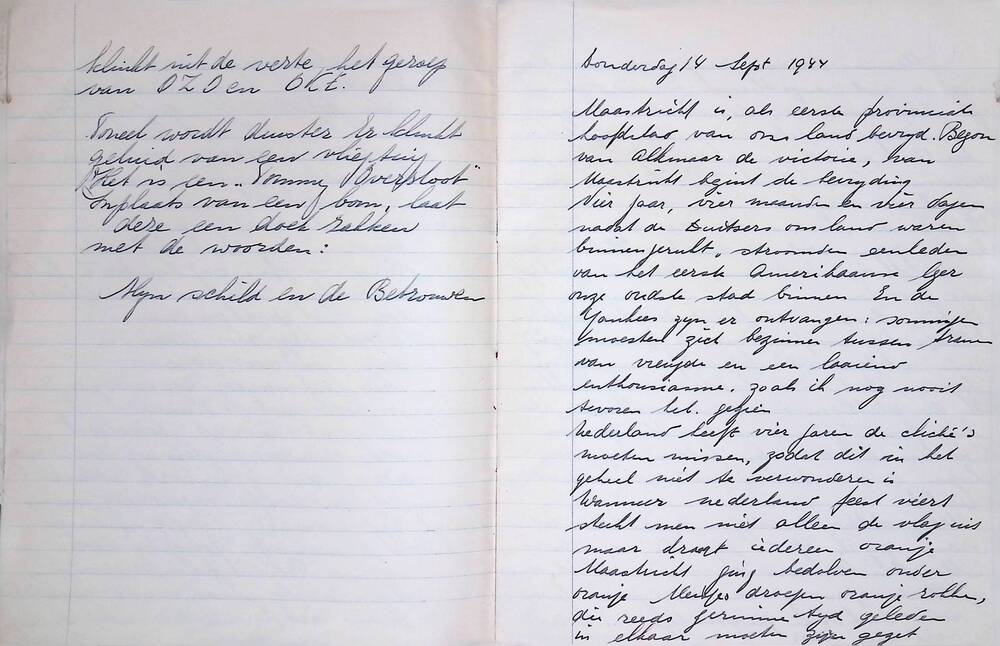 klinkt uit de verte, het geroep
van OZO en OKE.
Toneel wordt duister Er klinkt
geluid van een vliegtuig
Het is een „Tommy
Inplaats van een bom, laat
deze een doek zakken
met de woorden:
Myn schild en de Betrouwen
Donderdag 14 Sept 1944
Maastricht is, als eerste provinciale
hoofdstad van ons land bevryd. Begon
van Alkmaar de victorie, van
Maastricht begint de bevryding
Vier jaar, vier maanden en vier dagen
nadat de Duitsers ons land waren
binnengerukt, stroomden eenheden
van het eerste Amerikaanse leger
onze oudste stad binnen En de
Yankees zyn er ontvangen: sommigen
moesten zich bezinnen tussen tranen
van vreugde en een laaiend
enthousiasme, zoals ik nog nooit
tevoren heb gezien
Nederland heeft vier jaren de cliché's
moeten missen, zodat dit in het
geheel niet te verwonderen is
Wanneer nederland feest viert
steekt men niet alleen de vlag uit
maar draagt iedereen oranje
Maastricht ging bedolven onder
oranje Meisjes droegen oranje rokken,
die reeds geruime tyd geleden
in elkaar moeten zyn gezet